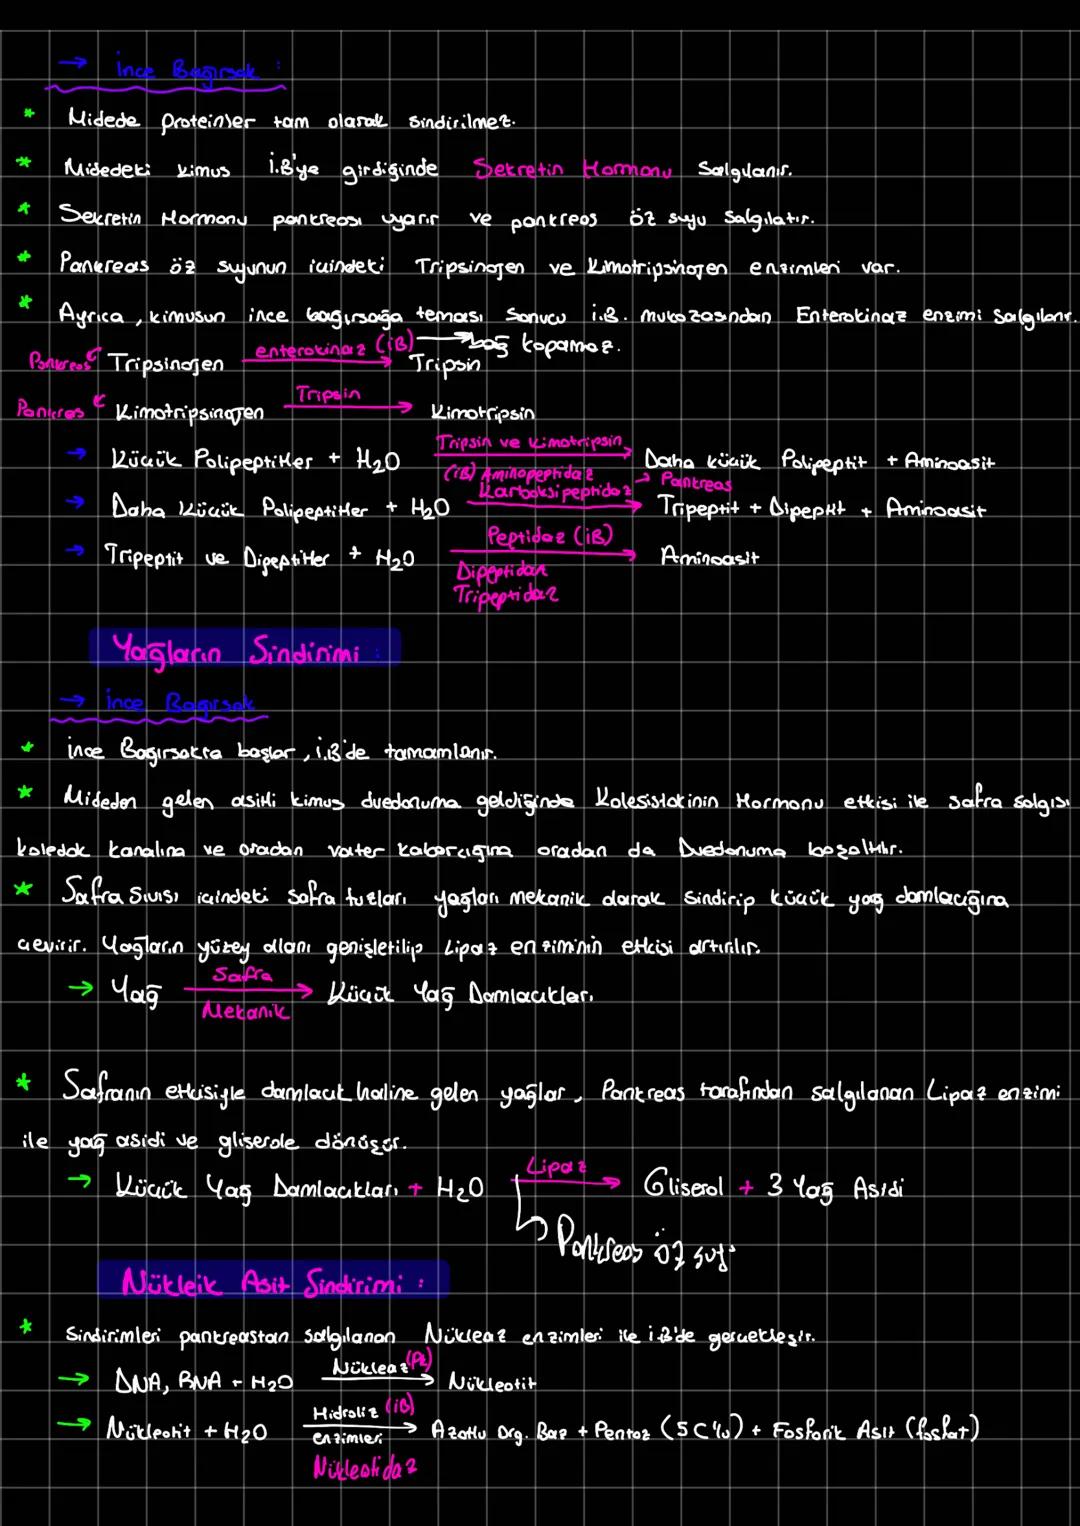 → İnce Bağırsak :
* Midede proteinler tam olarak sindirilmez.
* Midedeki kimus İ.B'ye girdiğinde Sekretin Hormonu Salgılanır.
* Sekretin Hormonu pankreası uyarır ve pankreas öz suyu salgılatır.
* Pankreas öz suyunun içindeki Tripsinojen ve Kimotripsinojen enzimleri var.
* Ayrıca, kimusun ince bağırsağa teması Sonucu i.B. mukozasından Enterokinaz enzimi Salgılanır.
Pankreas Tripsinojen enterokinaz (iB) → Tripsin → boş kopamaz.
Pankres Kimotripsinojen Tripsin → Kimotripsin
→ Küçük Polipeptitler + H2O Tripsin ve kimotripsin → Daha küçük Polipeptit + Aminoasit
→ Daha Küçük Polipeptitler + H2O (iB) Aminopeptidaz Karboksipeptidaz → Pankreas → Tripeptit + Dipeptit + Aminoasit
→ Tripeptit ve Dipeptitler + H2O Peptidaz (iB) → Aminoasit
Dipeptidaz
Tripeptidaz
Yağların Sindirimi :
→ İnce Bağırsak
* ince Bağırsakta başlar, i.B'de tamamlanır.
* Mideden gelen asitli kimus duedonuma geldiğinde Kolesistokinin Hormonu etkisi ile safra salgısı
koledok kanalına ve oradan vater kabarcığına oradan da Duedonuma boşaltılır.
* Safra Sıvısı içindeki safra tuzları yağları mekanik olarak sindirip küçük yağ damlacığına
çevirir. Yağların yüzey alanı genişletilip Lipaz enziminin etkisi artırılır.
→ Yağ Safra Mekanik → Küçük Yağ Damlacıkları
* Safranın etkisiyle damlacık haline gelen yağlar, Pankreas tarafından salgılanan Lipaz enzimi
ile yağ asidi ve gliserole dönüşür.
→ Küçük Yağ Damlacıkları + H2O Lipaz → Gliserol + 3 Yağ Asidi
↳ Pankreas öz suyu
Nükleik Asit Sindirimi :
* Sindirimleri pankreastan salgılanan Nükleaz enzimleri ile i.B'de gerçekleşir.
→ DNA, RNA + H2O Nükleaz → Nükleotit
→ Nükleotit + H2O Hidroliz (iB) enzimleri → Azotlu Org. Baz + Pentoz (5C'lu) + Fosforik Asit (fosfat)
Nükleotidaz